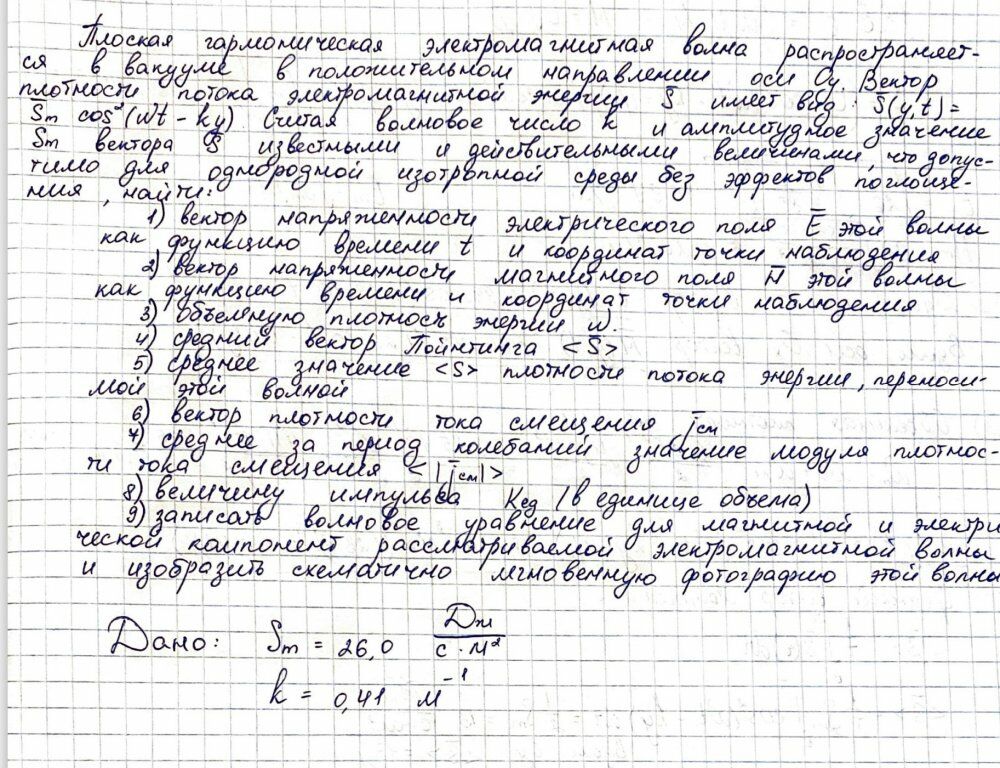 Плоская гармоническая электромагнитная волна распространяет-
ся в вакууме в положительном направлении оси Oy. Вектор
плотности потока электромагнитной энергии S̄ имеет вид: S̄(y,t)=
S̄m cos²(wt - ky). Считая волновое число k и амплитудное значение
Sm вектора S̄ известными и действительными величинами, что допус-
тимо для однородной изотропной среды без эффектов поглоще-
ния, найти:
1) вектор напряженности электрического поля Ē этой волны
как функцию времени t и координат точки наблюдения
2) вектор напряженности магнитного поля H̄ этой волны
как функцию времени и координат точки наблюдения
3) объемную плотность энергии w.
4) средний вектор Пойнтинга <S̄>
5) среднее значение <S> плотности потока энергии, переноси-
мой этой волной
6) вектор плотности тока смещения j̄см
7) среднее за период колебаний значение модуля плотнос-
ти тока смещения <|j̄см|>
8) величину импульса Kед (в единице объема)
9) записать волновое уравнение для магнитной и электри
ческой компонент рассматриваемой электромагнитной волны
и изобразить схематично мгновенную фотографию этой волны
Дано: Sm = 26,0 Дж/с·м²
k = 0,41 м⁻¹